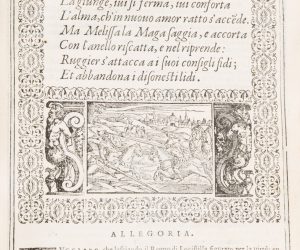 La giunge, iui si ferma, iui conforta
L'alma, ch'in nuouo amor ratto s'accède.
Ma Melissa la Maga saggia, e accorta
Con l'anello riscatta, e nel riprende:
Ruggier s'attacca a i suoi consigli fidi;
Et abbandona i disonesti lidi.
ALLEGORIA.